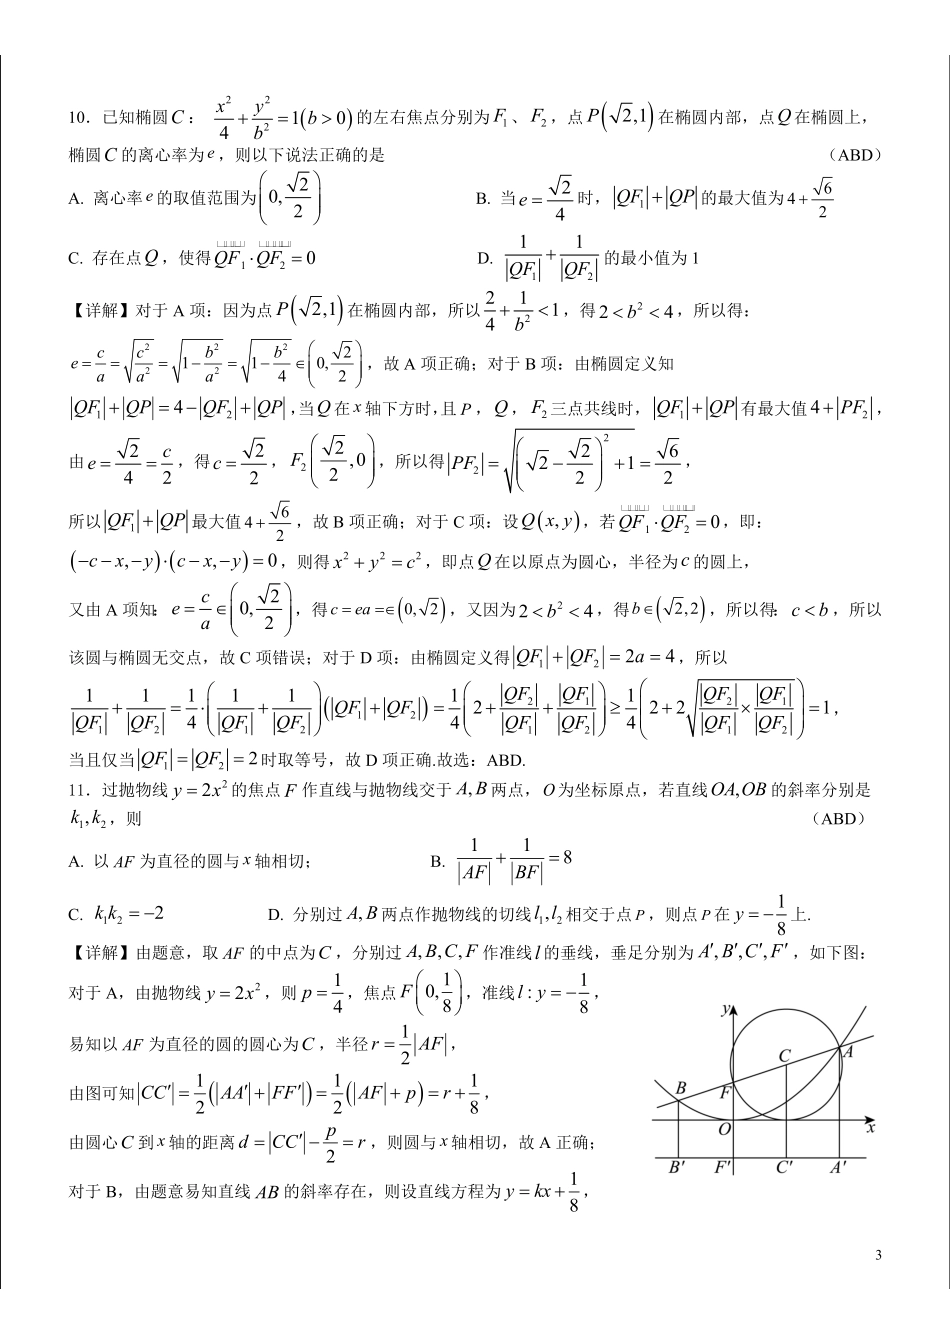 10．已知椭圆 C： x²/4 + y²/b² = 1(b > 0) 的左右焦点分别为 F₁、F₂，点 P(√2,1) 在椭圆内部，点 Q 在椭圆上，
椭圆 C 的离心率为 e，则以下说法正确的是 （ABD）
A. 离心率 e 的取值范围为 (0, √2/2) B. 当 e = √2/4 时，|QF₁| + |QP| 的最大值为 4 + √6/2
C. 存在点 Q，使得 QF₁ · QF₂ = 0 D. 1/|QF₁| + 1/|QF₂| 的最小值为 1
【详解】对于 A 项：因为点 P(√2,1) 在椭圆内部，所以 2/4 + 1/b² < 1，得 2 < b² < 4，所以得：
e = c/a = √(c²/a²) = √(1 − b²/a²) = √(1 − b²/4) ∈ (0, √2/2)，故 A 项正确；对于 B 项：由椭圆定义知
|QF₁| + |QP| = 4 − |QF₂| + |QP|，当 Q 在 x 轴下方时，且 P，Q，F₂ 三点共线时，|QF₁| + |QP| 有最大值 4 + |PF₂|，
由 e = √2/4 = c/2，得 c = √2/2，F₂(√2/2, 0)，所以得 |PF₂| = √((√2 − √2/2)² + 1) = √6/2，
所以 |QF₁| + |QP| 最大值 4 + √6/2，故 B 项正确；对于 C 项：设 Q(x, y)，若 QF₁ · QF₂ = 0，即：
(−c − x, −y) · (c − x, −y) = 0，则得 x² + y² = c²，即点 Q 在以原点为圆心，半径为 c 的圆上，
又由 A 项知：e = c/a ∈ (0, √2/2)，得 c = ea = ∈ (0, √2)，又因为 2 < b² < 4，得 b ∈ (√2, 2)，所以得：c < b，所以
该圆与椭圆无交点，故 C 项错误；对于 D 项：由椭圆定义得 |QF₁| + |QF₂| = 2a = 4，所以
1/|QF₁| + 1/|QF₂| = 1/4 · (1/|QF₁| + 1/|QF₂|)(|QF₁| + |QF₂|) = 1/4(2 + |QF₂|/|QF₁| + |QF₁|/|QF₂|) ≥ 1/4(2 + 2√(|QF₂|/|QF₁| × |QF₁|/|QF₂|)) = 1，
当且仅当 |QF₁| = |QF₂| = 2 时取等号，故 D 项正确.故选：ABD.
11．过抛物线 y = 2x² 的焦点 F 作直线与抛物线交于 A, B 两点，O 为坐标原点，若直线 OA, OB 的斜率分别是
k₁, k₂，则 （ABD）
A. 以 AF 为直径的圆与 x 轴相切； B. 1/|AF| + 1/|BF| = 8
C. k₁k₂ = −2 D. 分别过 A, B 两点作抛物线的切线 l₁, l₂ 相交于点 P，则点 P 在 y = −1/8 上.
【详解】由题意，取 AF 的中点为 C，分别过 A, B, C, F 作准线 l 的垂线，垂足分别为 A′, B′, C′, F′，如下图：
对于 A，由抛物线 y = 2x²，则 p = 1/4，焦点 F(0, 1/8)，准线 l : y = −1/8，
易知以 AF 为直径的圆的圆心为 C，半径 r = 1/2 |AF|，
由图可知 |CC′| = 1/2(|AA′| + |FF′|) = 1/2(|AF| + p) = r + 1/8，
由圆心 C 到 x 轴的距离 d = |CC′| − p/2 = r，则圆与 x 轴相切，故 A 正确；
对于 B，由题意易知直线 AB 的斜率存在，则设直线方程为 y = kx + 1/8，
y
C A
B F
O x
B′ F′ C′ A′
3